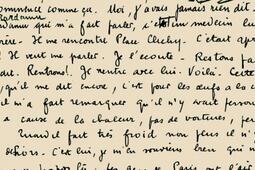 commencé comme ça. Moi, j'avais jamais rien dit.
qui m'a fait parler, c'est un médecin
Il me rencontre Place Clichy. C'était apr
Il veut me parler. Je l'écoute. Restons pa
dit. Rentrons!. Je rentre avec lui. Voilà. Cette
qu'il me dit encore, c'est pour les œufs à la c
il m'a fait remarquer qu'il n'y avait person
à cause de la chaleur, pas de voitures,
Quand il fait très froid non plus il n'y
dehors. C'est lui, je m'en souviens bien qui m'
Paris ont l'air